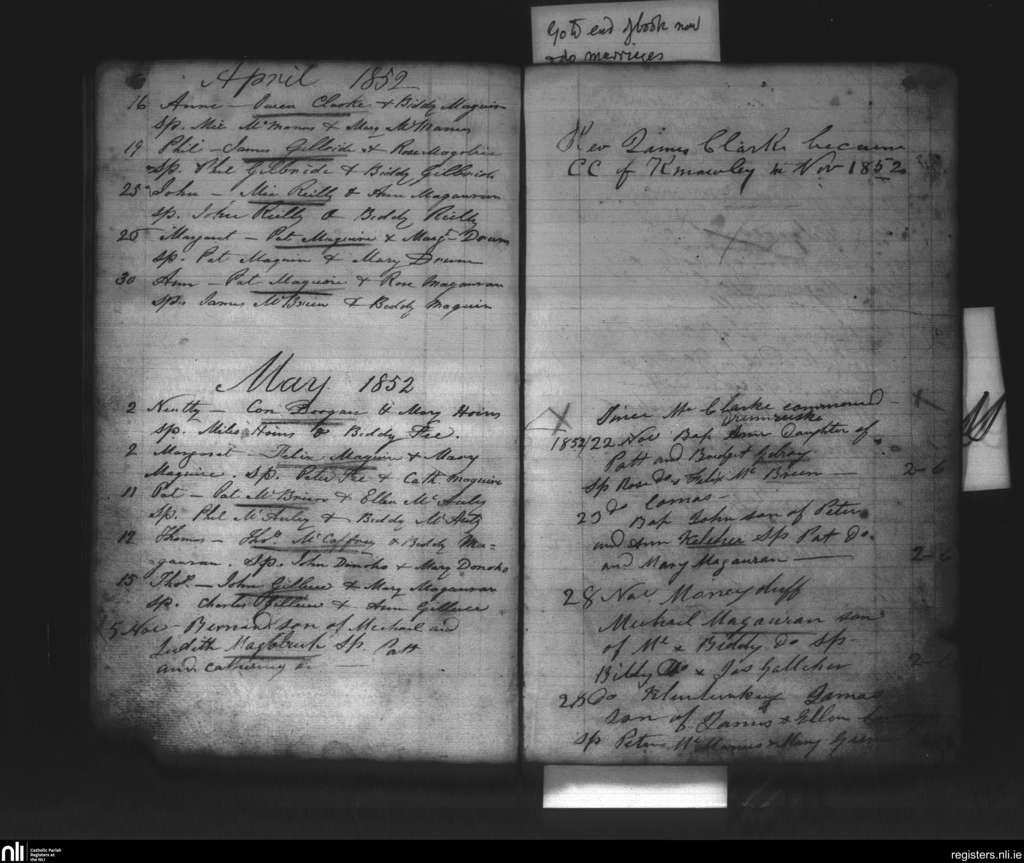 Go to end of book now
& do marriages
April 1852
16 Anne - Owen Clarke & Biddy Maguire
Sp. Mic McManus & Mary McManus
19 Phil - James Gilbride & Rose
Sp. Phil Gilbride & Biddy Gilbride
25 John - Mic Reilly & Ann Magauran
Sp. John Reilly & Biddy Reilly
25 Margaret - Pat Maguire & Marg.
Sp. Pat Maguire & Mary
30 Ann - Pat Maguire & Rose Magauran
Sp. James McBrien & Biddy Maguire
May 1852
2 - Con & Mary Hoins
Sp. Miles Hoins & Biddy Fee.
2 Margaret - Felix Maguire & Mary
Maguire. Sp. Peter Fee & Cath Maguire
11 Pat - Pat McBrien & Ellen McAuley
Sp. Phil McAuley & Biddy
12 Thomas - Thos. McCaffrey & Biddy Ma=
gauran. Sp. John Donoho & Mary Donoho
15 Thos. - John & Mary Magauran
Sp. Charles & Ann
5 Nov - Bernard son of Michael and
Judith Sp. Patt
and
Rev James Clarke became
CC of Kinawley in Nov 1852
Since Mr Clarke commenced
1852/22 Nov Bap Ann Daughter of
Patt and Bridget Gilroy
Sp Rose do & Felix McBrien
2-6
23 do
Bap John son of Peter
and Ann Sp Pat do.
and Mary Magauran
2-6
28 Nov Moneyduff
Michael Magauran son
of Ml & Biddy do Sp
Billy do & Jas Gallcher
2-6
28 do James
son of James & Ellen
Sp Peter McManus & Mary
nli
Catholic Parish
Registers at
the NLI
registers.nli.ie